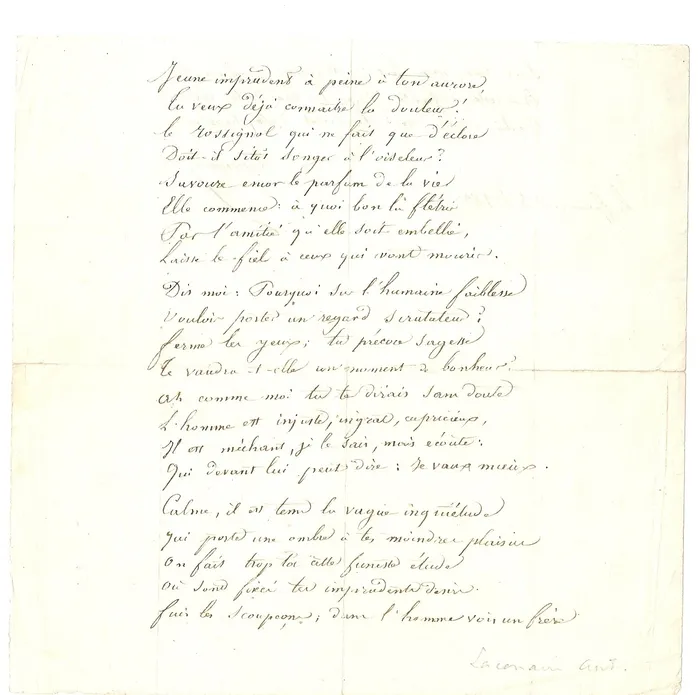 Jeune imprudent à peine à ton aurore,
Tu veux déjà connaitre la douleur!
le rossignol qui ne fait que d'éclore
Doit-il sitôt songer à l'oiseleur?
Savoure encor le parfum de la vie
Elle commence: à quoi bon la flétrir
Par l'amitié qu'elle soit embellie,
Laisse le fiel à ceux qui vont mourir.
Dis moi: Pourquoi sur l'humaine faiblesse
Vouloir porter un regard scrutateur?
ferme les yeux; ta précoce sagesse
Te vaudra-t-elle un moment de bonheur?
Ah comme moi tu te dirais sans doute
L'homme est injuste, ingrat, capricieux,
Il est méchant, je le sais, mais écoute:
Qui devant lui peut dire: Je vaux mieux.
Calme, il est tems la vague inquiétude
qui porte une ombre à tes moindres plaisirs
On fait trop tôt cette funeste étude
Où sont fixés tes imprudents desirs.
fuis les scoupçons; dans l'homme vois un frère